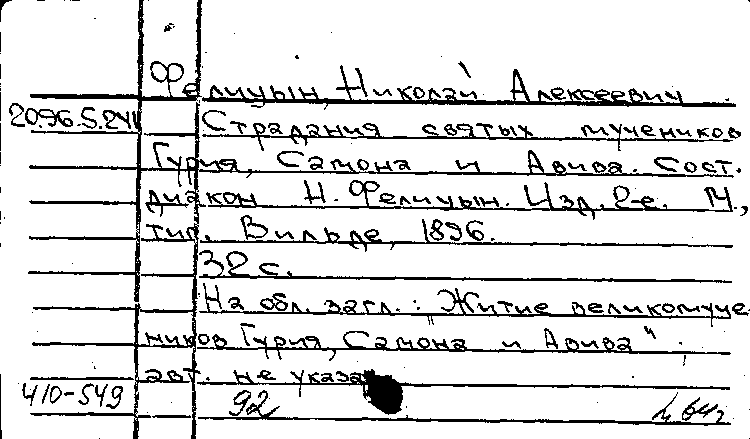 Фелицын, Николай Алексеевич.
2096.5.241 Страдания святых мучеников
Гурия, Самона и Авива. Сост.
диакон Н. Фелицын. Изд. 2-е. М.,
тип. Вильде, 1896.
32 с.
На обл. загл.: „Житие великомуче
ников Гурия, Самона и Авива";
авт. не указан
410-549 92